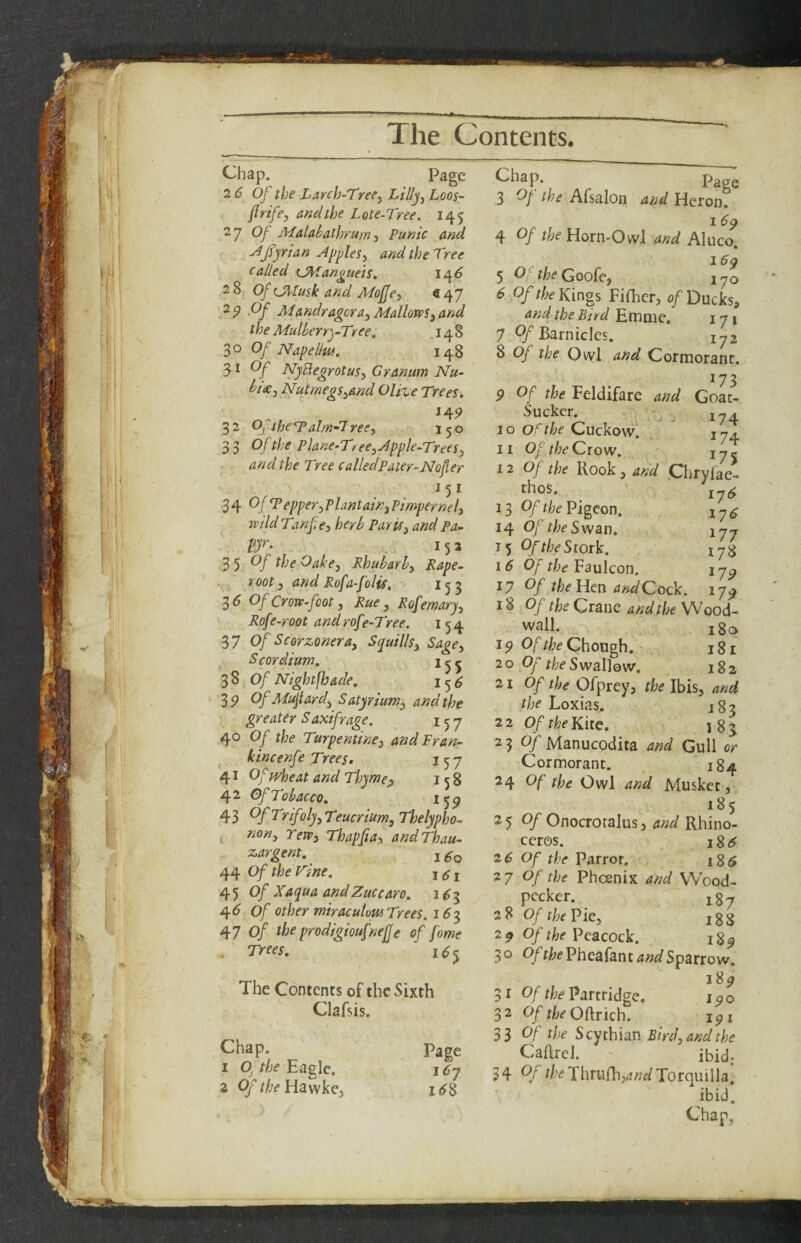 The Contents.
Chap. Page
26 Of the Larch-Tree, Lilly, Loos-
ſtrife, and the Lote-Tree. 145
27 Of Malabathrum, Punic and
Aſſyrian Apples, and the Tree
called Mangueis. 146
28 Of Musk and Moſſe, 147
29 Of Mandragora, Mallows, and
the Mulberry-Tree. 148
30 Of Napellus. 148
31 Of Nyctegrotus, Granum Nu-
biæ, Nutmegs, and Olive Trees.
149
32 Of the Palm-Tree, 150
33 Of the Plane-Tree, Apple-Trees,
and the Tree called Pater-Noſter
151
34 Of Pepper, Plantair, Pimpernel,
wild Tanſie, herb Paris, and Pa-
pyr. 152
35 Of the Oake, Rhubarb, Rape-
root, and Roſa-ſolis. 153
36 Of Crow-foot, Rue, Roſemary,
Roſe-root and roſe-Tree. 154
37 Of Scorzonera, Squills, Sage,
Scordium. 155
38 Of Nightſhade. 156
39 Of Muſtard, Satyrium, and the
greater Saxifrage. 157
40 Of the Turpentine, and Fran-
kincenſe Trees. 157
41 Of Wheat and Thyme, 158
42 Of Tobacco. 159
43 Of Trifoly, Teucrium, Thelypho-
non, Yew, Thapſia, and Thau-
zargent. 160
44 Of the Vine. 161
45 Of Xaqua and Zuccaro. 163
46 Of other miraculous Trees. 163
47 Of the prodigiouſneſſe of ſome
Trees. 165
The Contents of the Sixth
Claſsis.
Chap. Page
1 Of the Eagle. 167
2 Of the Hawke, 168
Chap. Page
3 Of the Aſsalon and Heron.
169
4 Of the Horn-Owl and Aluco.
169
5 Of the Gooſe, 170
6 Of the Kings Fiſher, of Ducks,
and the Bird Emme. 171
7 Of Barnicles. 172
8 Of the Owl and Cormorant.
173
9 Of the Feldifare and Goat-
Sucker. 174
10 Of the Cuckow. 174
11 Of the Crow. 175
12 Of the Rook, and Chryſae-
thos. 176
13 Of the Pigeon. 176
14 Of the Swan. 177
15 Of the Stork. 178
16 Of the Faulcon. 179
17 Of the Hen and Cock. 179
18 Of the Crane and the Wood-
wall. 180
19 Of the Chough. 181
20 Of the Swallow. 182
21 Of the Oſprey, the Ibis, and
the Loxias. 183
22 Of the Kite. 183
23 Of Manucodita and Gull or
Cormorant. 184
24 Of the Owl and Musket,
185
25 Of Onocrotalus, and Rhino-
ceros. 186
26 Of the Parrot. 186
27 Of the Phœnix and Wood-
pecker. 187
28 Of the Pie, 188
29 Of the Peacock. 189
30 Of the Pheaſant and Sparrow.
189
31 Of the Partridge. 190
32 Of the Oſtrich. 191
33 Of the Scythian Bird, and the
Caſtrel. ibid.
34 Of the Thruſh, and Torquilla.
ibid.
Chap,